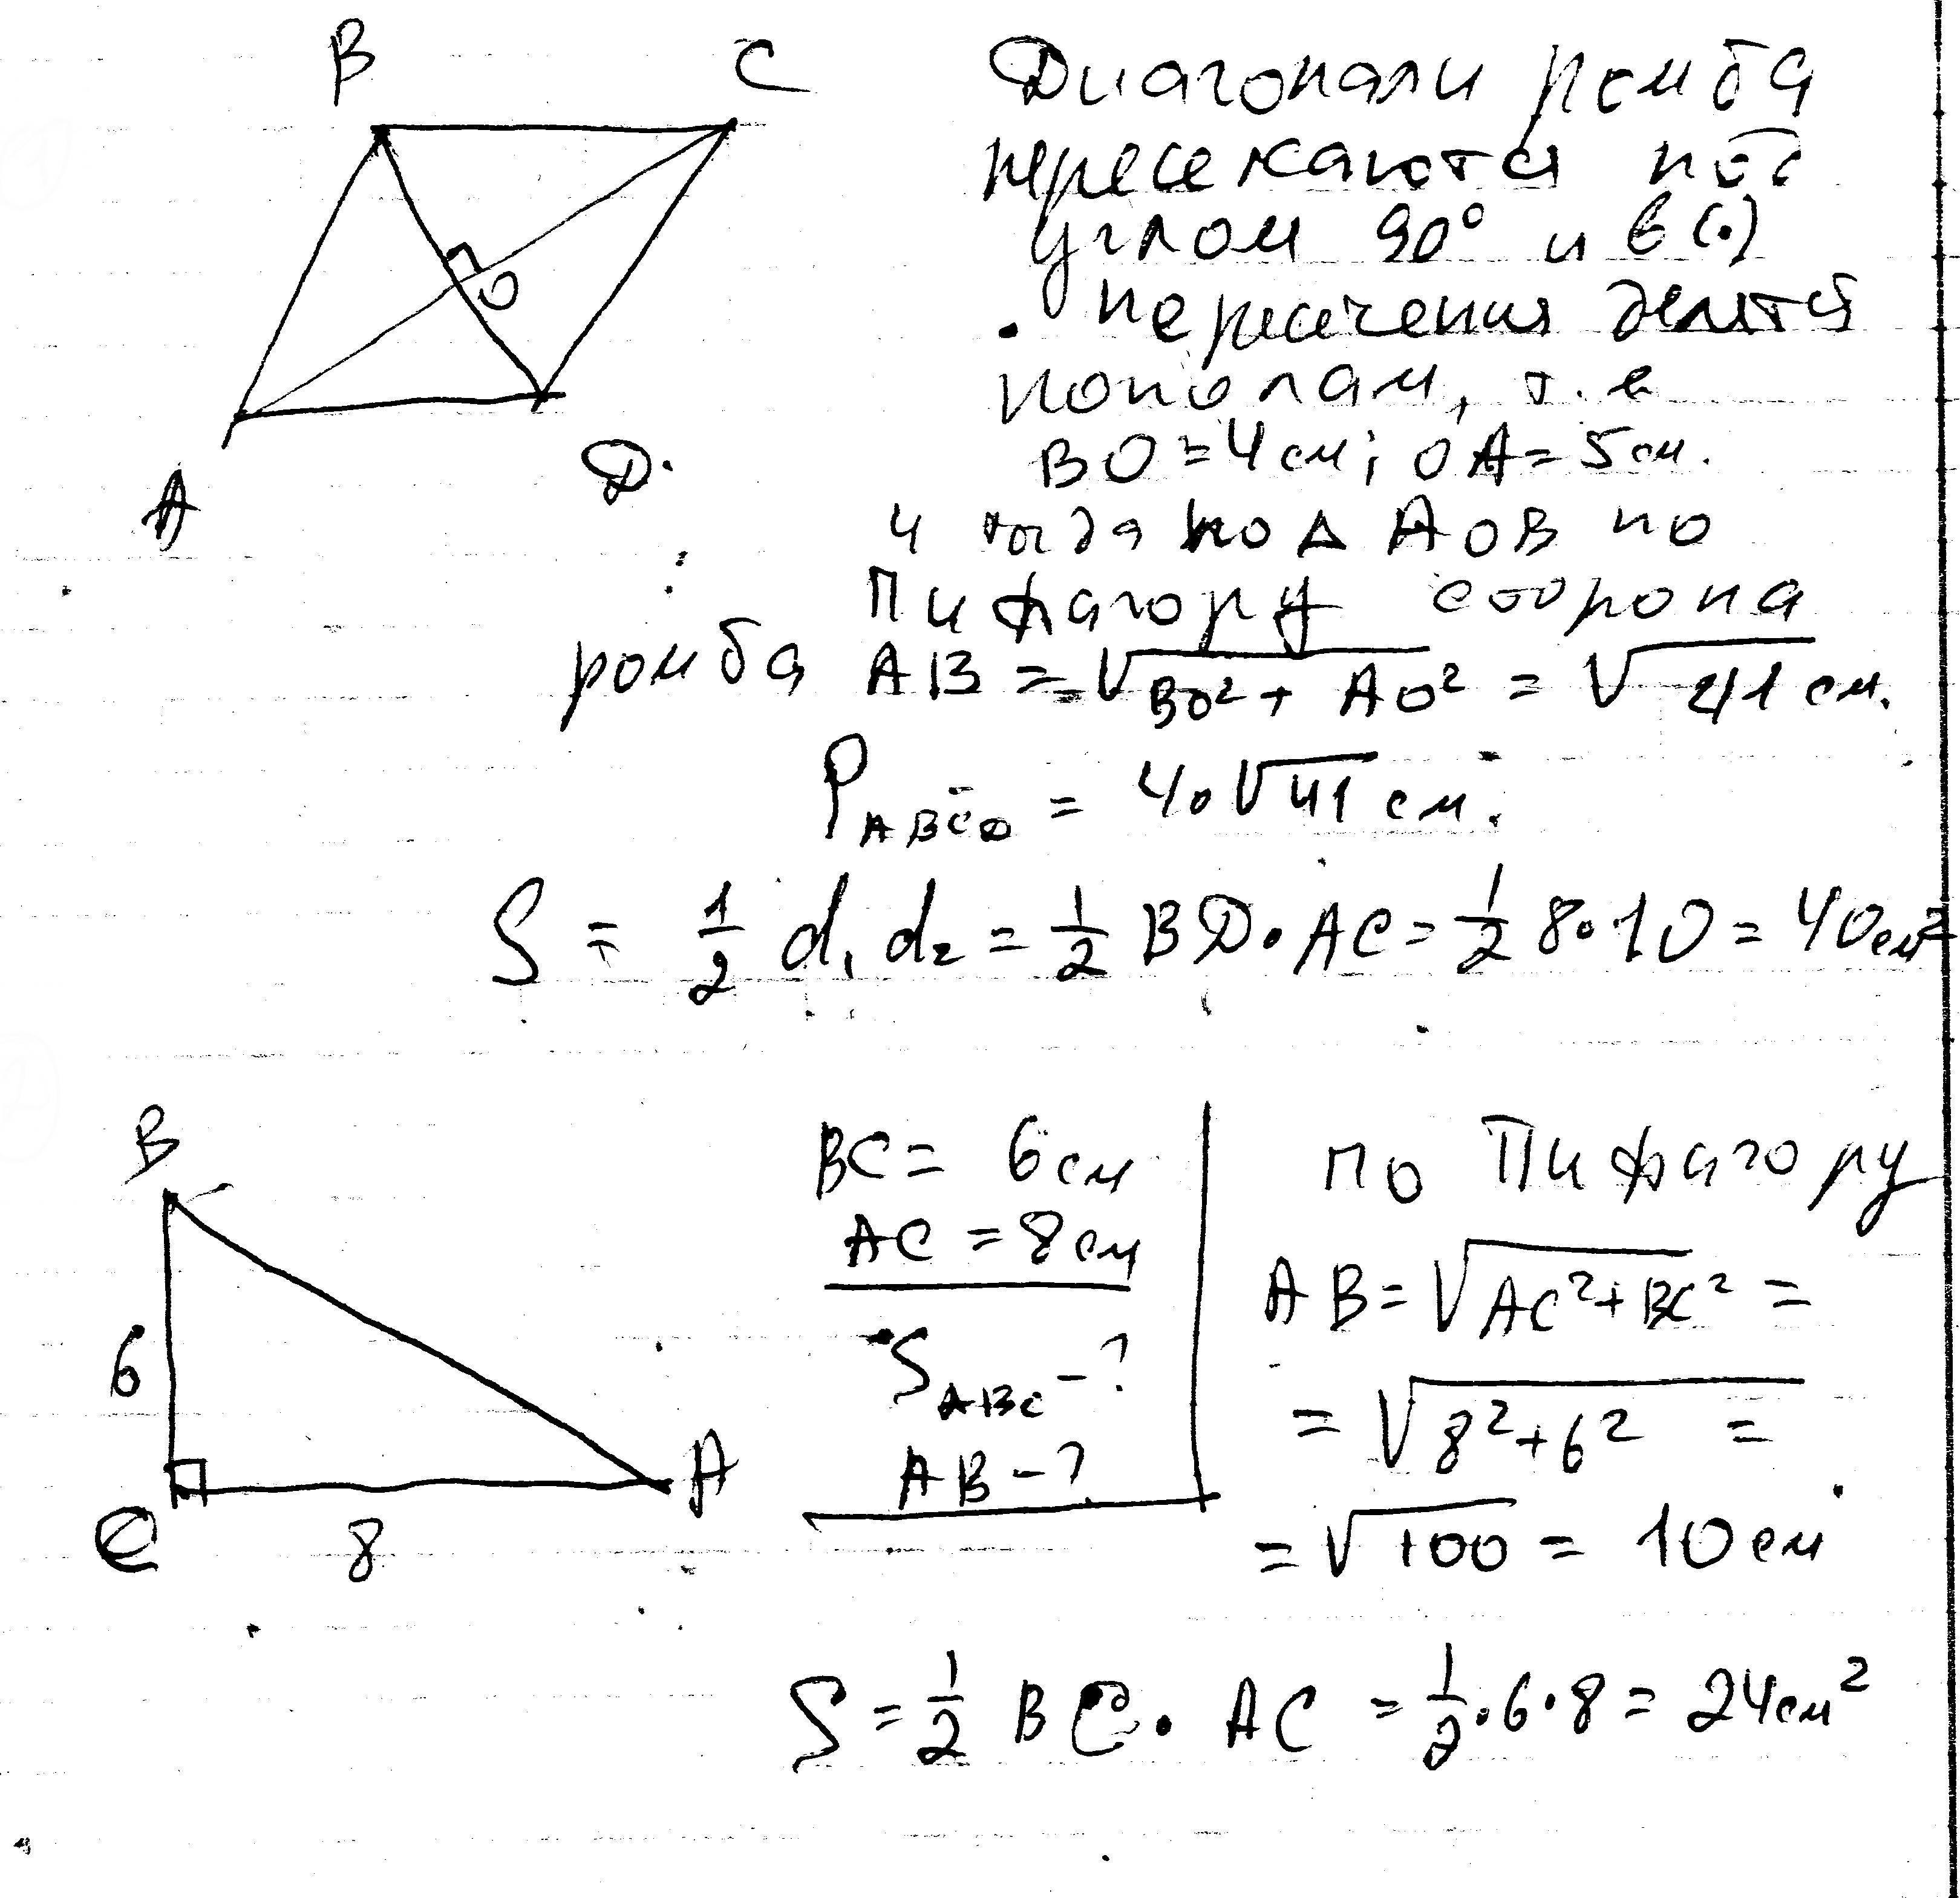 B C
O
A Д.
Диагонали ромба
пересекаются под
углом 90° и в (·)
пересечения делятся
пополам, т.е
BO = 4 см; OA = 5 см.
и тогда по Δ AOB по
Пифагору сторона
ромба AB = √(BO² + AO²) = √41 см.
P ABCД = 4·√41 см.
S = 1/2 d₁ d₂ = 1/2 BД · AC = 1/2 8·10 = 40 см²
B
6
C 8 A
BC = 6 см
AC = 8 см
S ABC - ?
AB - ?
по Пифагору
AB = √(AC² + BC²) =
= √(8² + 6²) =
= √100 = 10 см
S = 1/2 BC · AC = 1/2 · 6 · 8 = 24 см²